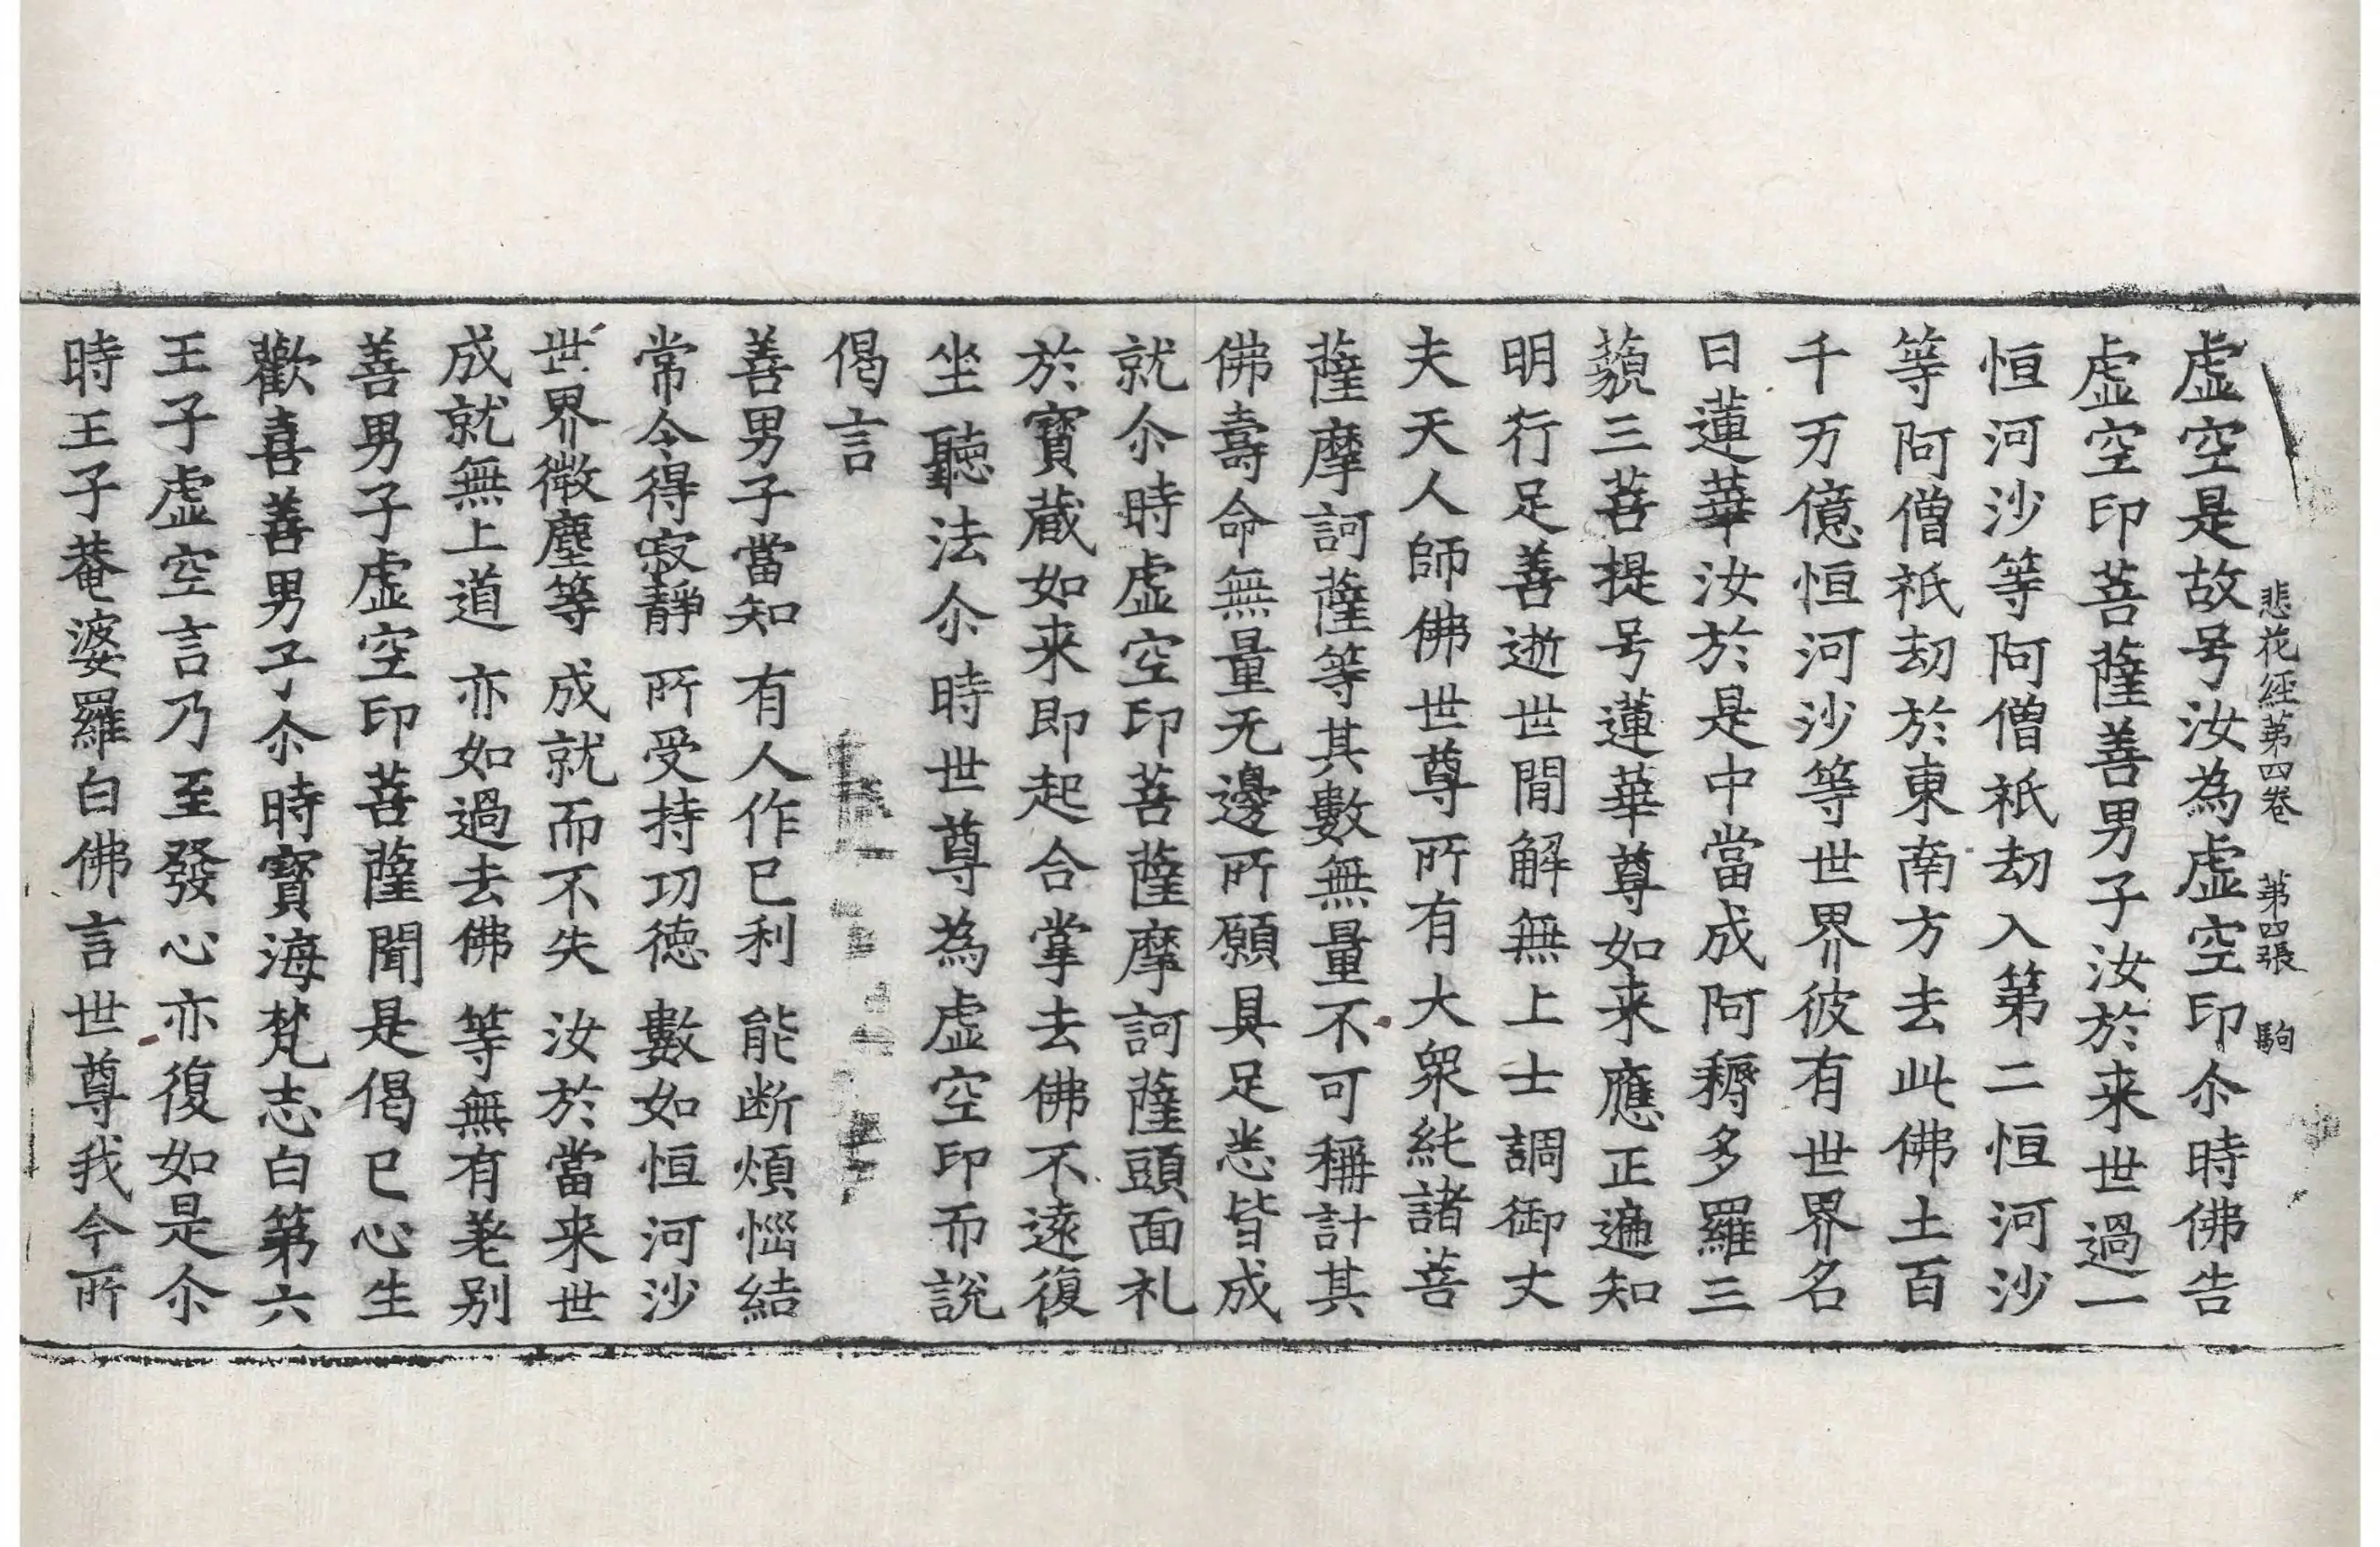 悲花経第四卷　第四張　駒
虚空是故号汝為虚空印尒時佛告
虚空印菩薩善男子汝於来世過一
恒河沙等阿僧祇劫入第二恒河沙
等阿僧祇劫於東南方去此佛土百
千万億恒河沙等世界彼有世界名
曰蓮華汝於是中當成阿耨多羅三
藐三菩提号蓮華尊如来應正遍知
明行足善逝世間解無上士調御丈
夫天人師佛世尊所有大衆純諸菩
薩摩訶薩等其數無量不可稱計其
佛壽命無量无邊所願具足悉皆成
就尒時虚空印菩薩摩訶薩頭面礼
於寶蔵如来即起合掌去佛不遠復
坐聽法尒時世尊為虚空印而說
偈言
善男子當知　有人作已利　能断煩惱結
常令得寂静　所受持功徳　數如恒河沙
世界微塵等　成就而不失　汝於當来世
成就無上道　亦如過去佛　等無有差别
善男子虚空印菩薩聞是偈已心生
歡喜善男子尒時寶海梵志白第六
王子虚空言乃至發心亦復如是尒
時王子菴婆羅白佛言世尊我今所